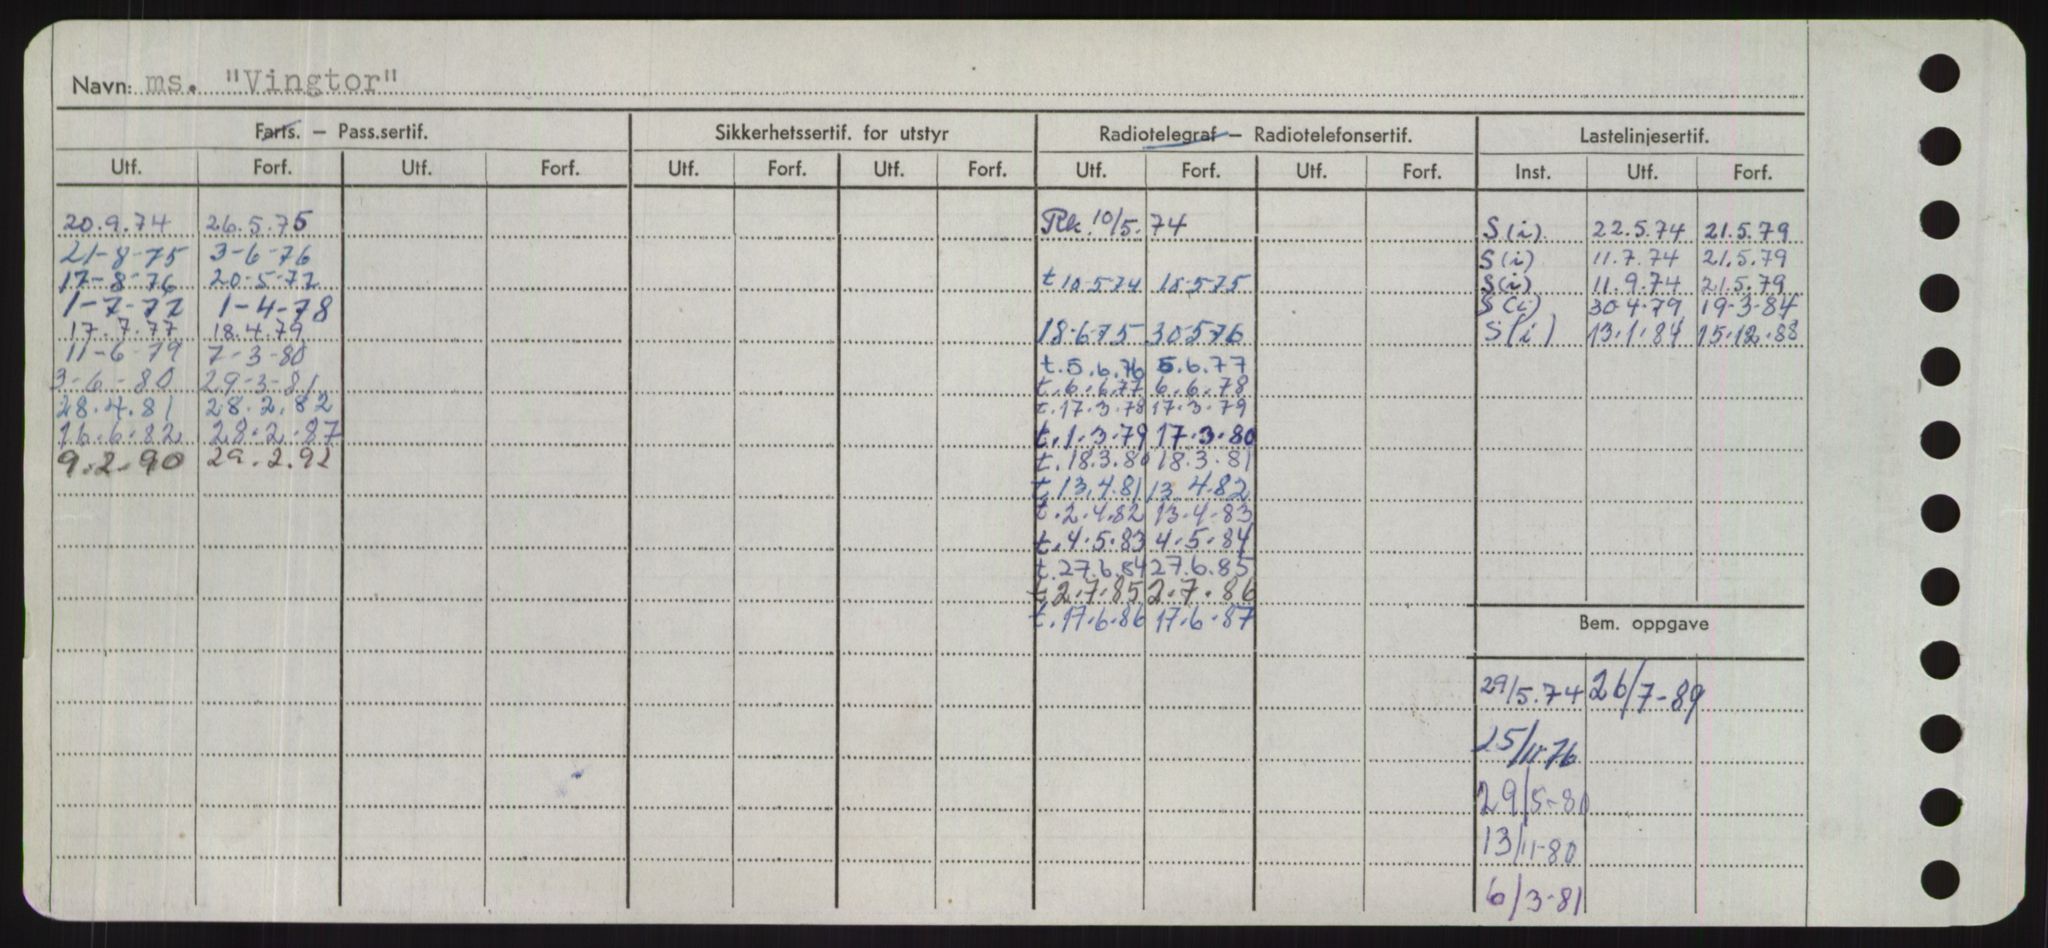 Navn: ms. "Vingtor"
Farts. – Pass.sertif. Sikkerhetssertif. for utstyr Radiotelegraf – Radiotelefonsertif. Lastelinjesertif.
Utf. Forf. Utf. Forf. Utf. Forf. Utf. Forf. Utf. Forf. Utf. Forf. Inst. Utf. Forf.
20.9.74 26.5.75 Rk. 10/5.74 S(i) 22.5.74 21.5.79
21-8-75 3-6-76 S(i) 11.7.74 21.5.79
17-8-76 20-5-77 t 10-5-74 10-5-75 S(i) 11.9.74 21.5.79
1-7-77 1-4-78 S(i) 30-4-79 19-3-84
17.7.77 18.4.79 18-6-75 30-5-76 S(i) 13.1.84 15.12.88
11-6-79 7-3-80 t.5.6.76 5.6.77
3-6-80 29-3-81 t.6.6.77 6.6.78
28.4.81 28.2.82 t.17.3.78 17.3.79
16.6.82 28.2.87 t.1.3.79 17.3.80
9.2.90 29.2.92 t.18.3.80 18.3.81
t.13.4.81 13.4.82
t.2.4.82 13.4.83
t.4.5.83 4.5.84
t.27.6.84 27.6.85
t2.7.85 2.7.86
t.17.6.86 17.6.87
Bem. oppgave
29/5.74 26/7-89
25/11-76
29/5-80
13/11-80
6/3-81